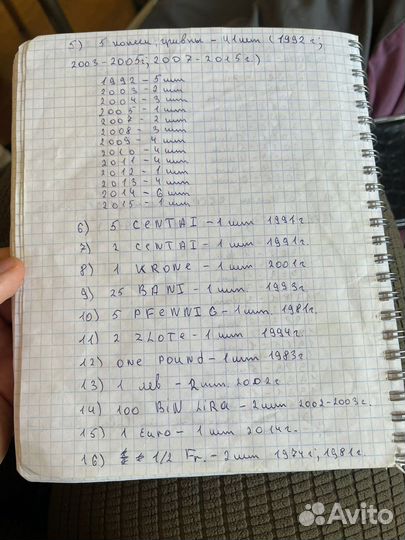 5) 5 копеек, гривны - 41 шт (1992 г;
2003-2005г; 2007-2015г.)
1992 - 5 шт
2003 - 2 шт
2004 - 3 шт
2005 - 1 шт
2007 - 2 шт
2008 - 3 шт
2009 - 4 шт
2010 - 4 шт
2011 - 4 шт
2012 - 1 шт
2013 - 4 шт
2014 - 6 шт
2015 - 1 шт
6) 5 CENTAI - 1 шт 1991г.
7) 2 CENTAI - 1 шт 1991г.
8) 1 KRONE - 1 шт 2001г
9) 25 BANI - 1 шт 1993г.
10) 5 PFENNIG - 1 шт. 1981г.
11) 2 ZLOTE - 1 шт 1994г.
12) ONE POUND - 1 шт 1983г.
13) 1 лев - 2 шт. 2002г.
14) 100 BIN LIRA - 2 шт 2002-2003г.
15) 1 Euro - 1 шт 2014г.
16) 1/2 Fr. - 2 шт 1974г; 1981г.
Avito